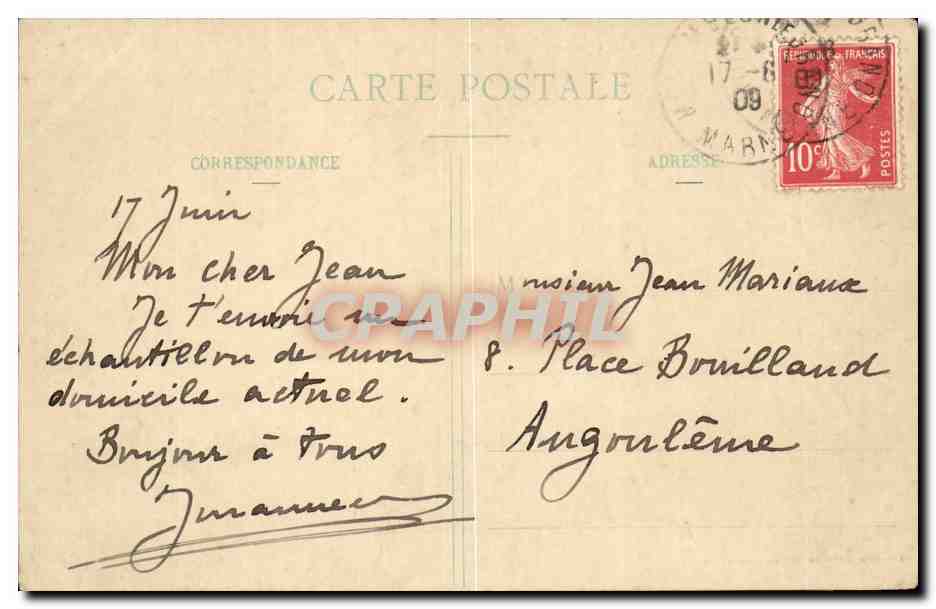 CARTE POSTALE
CORRESPONDANCE
ADRESSE
REPUBLIQUE FRANÇAISE
10c
POSTES
17 -6
09
MARNE
17 Juin
Mon cher Jean
Je t'envoie un
échantillon de mon
domicile actuel.
Bonjour à tous
Monsieur Jean Mariaux
8. Place Bouillaud
Angoulême
CPAPHIL